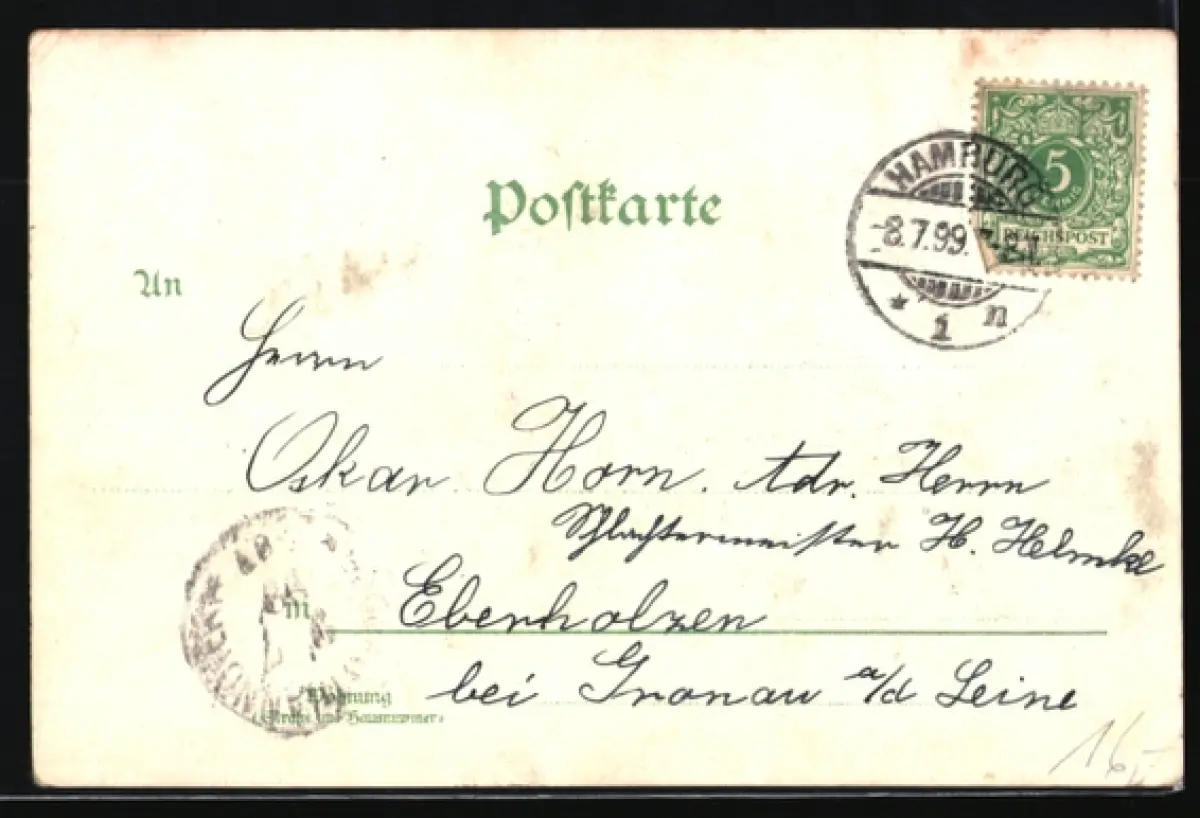 Postkarte
HAMBURG
8.7.99. 7-8
* 1 n
5
REICHSPOST
An
Herrn
Oskar Horn. Adr. Herrn
Schlachtermeister H. Helmke
in Eberholzen
bei Gronau a/d Leine
Wohnung
(Straße und Hausnummer)
16,-